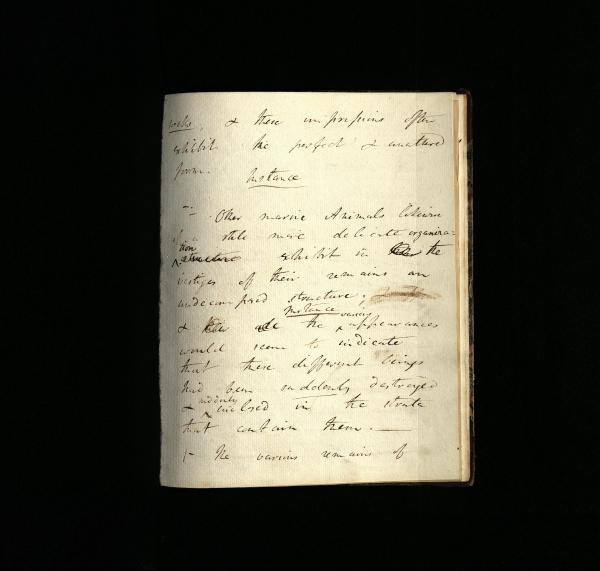 rocks, & these impressions often
exhibit the perfect & unaltered
form. Instance
Other marine Animals
of a still more delicate organiza-
tion structure exhibit in the
vestiges of their remains an
undecomposed structure;
Instance various
& all the appearances
would seem to indicate
that these different beings
had been suddenly destroyed
suddenly
& inclosed in the strata
that contain them. —
/- The various remains of